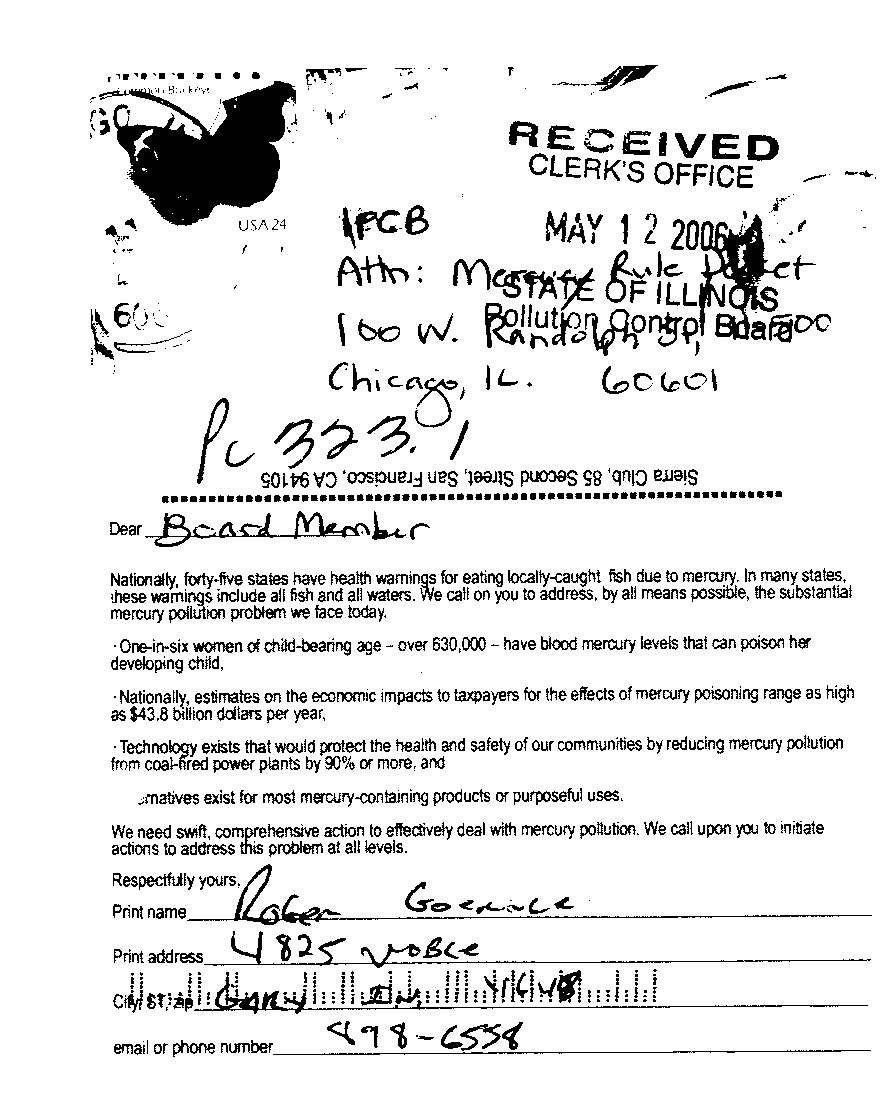 Common Buckeye
GO
RECEIVED
CLERK'S OFFICE
USA 24
MAY 12 2006
IPCB
Attn: Mercury Rule Docket
STATE OF ILLINOIS
Pollution Control Board
100 W. Randolph St,
Chicago, IL. 60601
600
Pc 323.1
Sierra Club, 85 Second Street, San Francisco, CA 94105
Dear Board Member
Nationally, forty-five states have health warnings for eating locally-caught fish due to mercury. In many states,
these warnings include all fish and all waters. We call on you to address, by all means possible, the substantial
mercury pollution problem we face today.
· One-in-six women of child-bearing age – over 630,000 – have blood mercury levels that can poison her
developing child,
· Nationally, estimates on the economic impacts to taxpayers for the effects of mercury poisoning range as high
as $43.8 billion dollars per year,
· Technology exists that would protect the health and safety of our communities by reducing mercury pollution
from coal-fired power plants by 90% or more, and
ernatives exist for most mercury-containing products or purposeful uses.
We need swift, comprehensive action to effectively deal with mercury pollution. We call upon you to initiate
actions to address this problem at all levels.
Respectfully yours,
Print name Roger
Print address 4825 NOBLE
City, ST, zip GARY IN,
email or phone number 898-6558